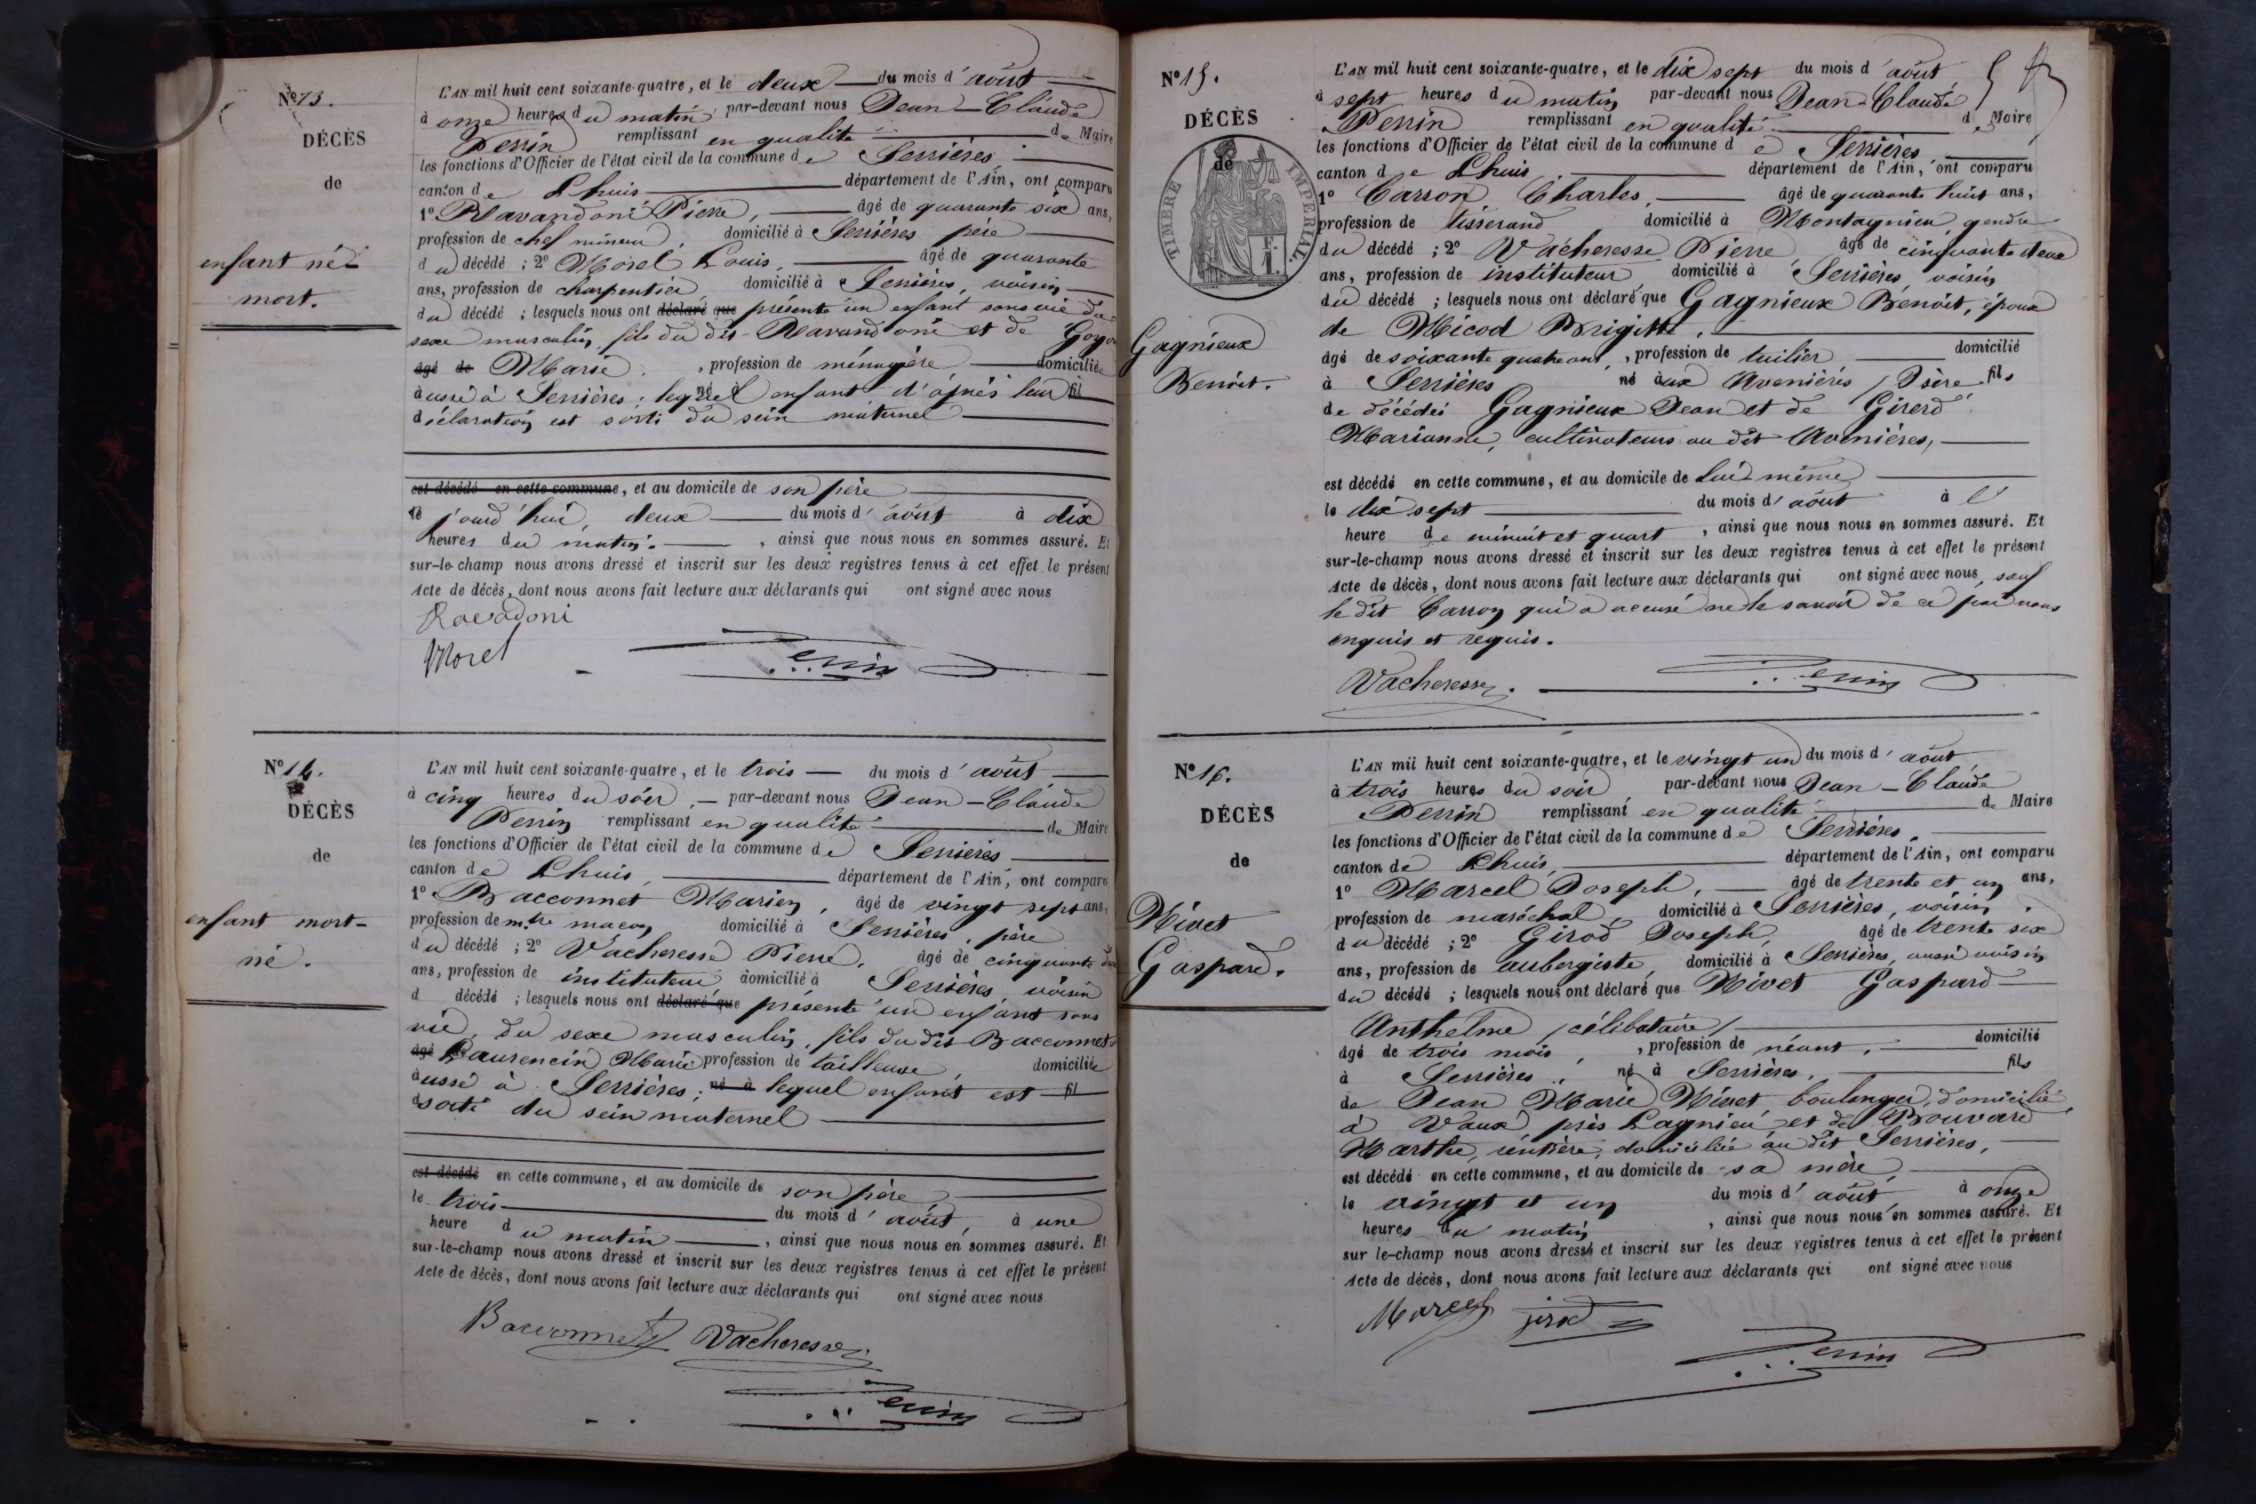 N° 13.
DÉCÈS
de
enfant né
mort.
L'AN mil huit cent soixante-quatre, et le deux du mois d'août
à onze heures du matin par-devant nous Jean-Claude
Perrin remplissant en qualité de Maire
les fonctions d'Officier de l'état civil de la commune de Serrières
canton de Lhuis département de l'Ain, ont comparu
1° Ravandoni Pierre, âgé de quarante six ans,
profession de chef mineur, domicilié à Serrières père
du décédé ; 2° Morel Louis, âgé de quarante
ans, profession de charpentier domicilié à Serrières, voisin
du décédé ; lesquels nous ont déclaré que présenté un enfant sans vie du
sexe masculin, fils du dit Ravandoni et de
âgé de Marie, profession de ménagère domiciliée
aussi à Serrières ; lequel né à enfant d'après leur fil
déclaration est sorti du sein maternel
est décédé en cette commune, et au domicile de son père
le jourd'hui, deux du mois d'août à dix
heures du matin. , ainsi que nous nous en sommes assuré. Et
sur-le-champ nous avons dressé et inscrit sur les deux registres tenus à cet effet le présent
Acte de décès, dont nous avons fait lecture aux déclarants qui ont signé avec nous
Ravadoni
Morel
Perrin
N° 14.
DÉCÈS
de
enfant mort-
né.
L'AN mil huit cent soixante-quatre, et le trois du mois d'août
à cinq heures du soir, par-devant nous Jean-Claude
Perrin remplissant en qualité de Maire
les fonctions d'Officier de l'état civil de la commune de Serrières
canton de Lhuis, département de l'Ain, ont comparu
1° Bacconnet Marien, âgé de vingt sept ans,
profession de mtre maçon domicilié à Serrières, père
du décédé ; 2° Vacheresse Pierre, âgé de cinquante
ans, profession de instituteur domicilié à Serrières voisin
d décédé ; lesquels nous ont déclaré que présenté un enfant sans
vie, du sexe masculin, fils du dit Bacconnet
âgé Laurencin Marie profession de tailleuse, domiciliée
aussi à Serrières ; né à lequel enfant est fil
sorti du sein maternel
est décédé en cette commune, et au domicile de son père
le trois du mois d'août, à une
heure du matin , ainsi que nous nous en sommes assuré. Et
sur-le-champ nous avons dressé et inscrit sur les deux registres tenus à cet effet le présent
Acte de décès, dont nous avons fait lecture aux déclarants qui ont signé avec nous
Bacconnet Vacheresse
Perrin
N° 15.
DÉCÈS
de
TIMBRE IMPERIAL
1 F.
Gagnieux
Benoit.
L'AN mil huit cent soixante-quatre, et le dix sept du mois d'août
à sept heures du matin par-devant nous Jean-Claude
Perrin remplissant en qualité de Maire
les fonctions d'Officier de l'état civil de la commune de Serrières
canton de Lhuis, département de l'Ain, ont comparu
1° Carron Charles, âgé de quarante huit ans,
profession de tisserand domicilié à Montagnieu, gendre
du décédé ; 2° Vacheresse Pierre âgé de cinquante deux
ans, profession de instituteur domicilié à Serrières, voisin
du décédé ; lesquels nous ont déclaré que Gagnieux Benoit, époux
de Micod Brigitte,
âgé de soixante quatre ans, profession de tuilier domicilié
à Serrières né aux Avenières, Isère fils
de décédés Gagnieux Jean et de Girerd
Marianne, cultivateurs au dit Avenières,
est décédé en cette commune, et au domicile de lui même
le dix sept du mois d'août à l'
heure de minuit et quart , ainsi que nous nous en sommes assuré. Et
sur-le-champ nous avons dressé et inscrit sur les deux registres tenus à cet effet le présent
Acte de décès, dont nous avons fait lecture aux déclarants qui ont signé avec nous, sauf
le dit Carron qui a accusé ne le savoir de ce par nous
enquis et requis.
Vacheresse
Perrin
N° 16.
DÉCÈS
de
Nivet
Gaspard.
L'AN mil huit cent soixante-quatre, et le vingt un du mois d'août
à trois heures du soir par-devant nous Jean-Claude
Perrin remplissant en qualité de Maire
les fonctions d'Officier de l'état civil de la commune de Serrières,
canton de Lhuis, département de l'Ain, ont comparu
1° Marcel Joseph, âgé de trente et un ans,
profession de maréchal, domicilié à Serrières, voisin
du décédé ; 2° Girod Joseph, âgé de trente six
ans, profession de aubergiste, domicilié à Serrières, aussi voisin
du décédé ; lesquels nous ont déclaré que Nivet Gaspard
Anthelme (célibataire)
âgé de trois mois, profession de néant, domicilié
à Serrières, né à Serrières, fils
de Jean Marie Nivet boulanger, domicilié
à Vaux près Lagnieu et de Bouvard
Marthe, rentière, domiciliée au dit Serrières,
est décédé en cette commune, et au domicile de sa mère
le vingt et un du mois d'août à onze
heures du matin , ainsi que nous nous en sommes assuré. Et
sur le-champ nous avons dressé et inscrit sur les deux registres tenus à cet effet le présent
Acte de décès, dont nous avons fait lecture aux déclarants qui ont signé avec nous
Marcel jirod
Perrin